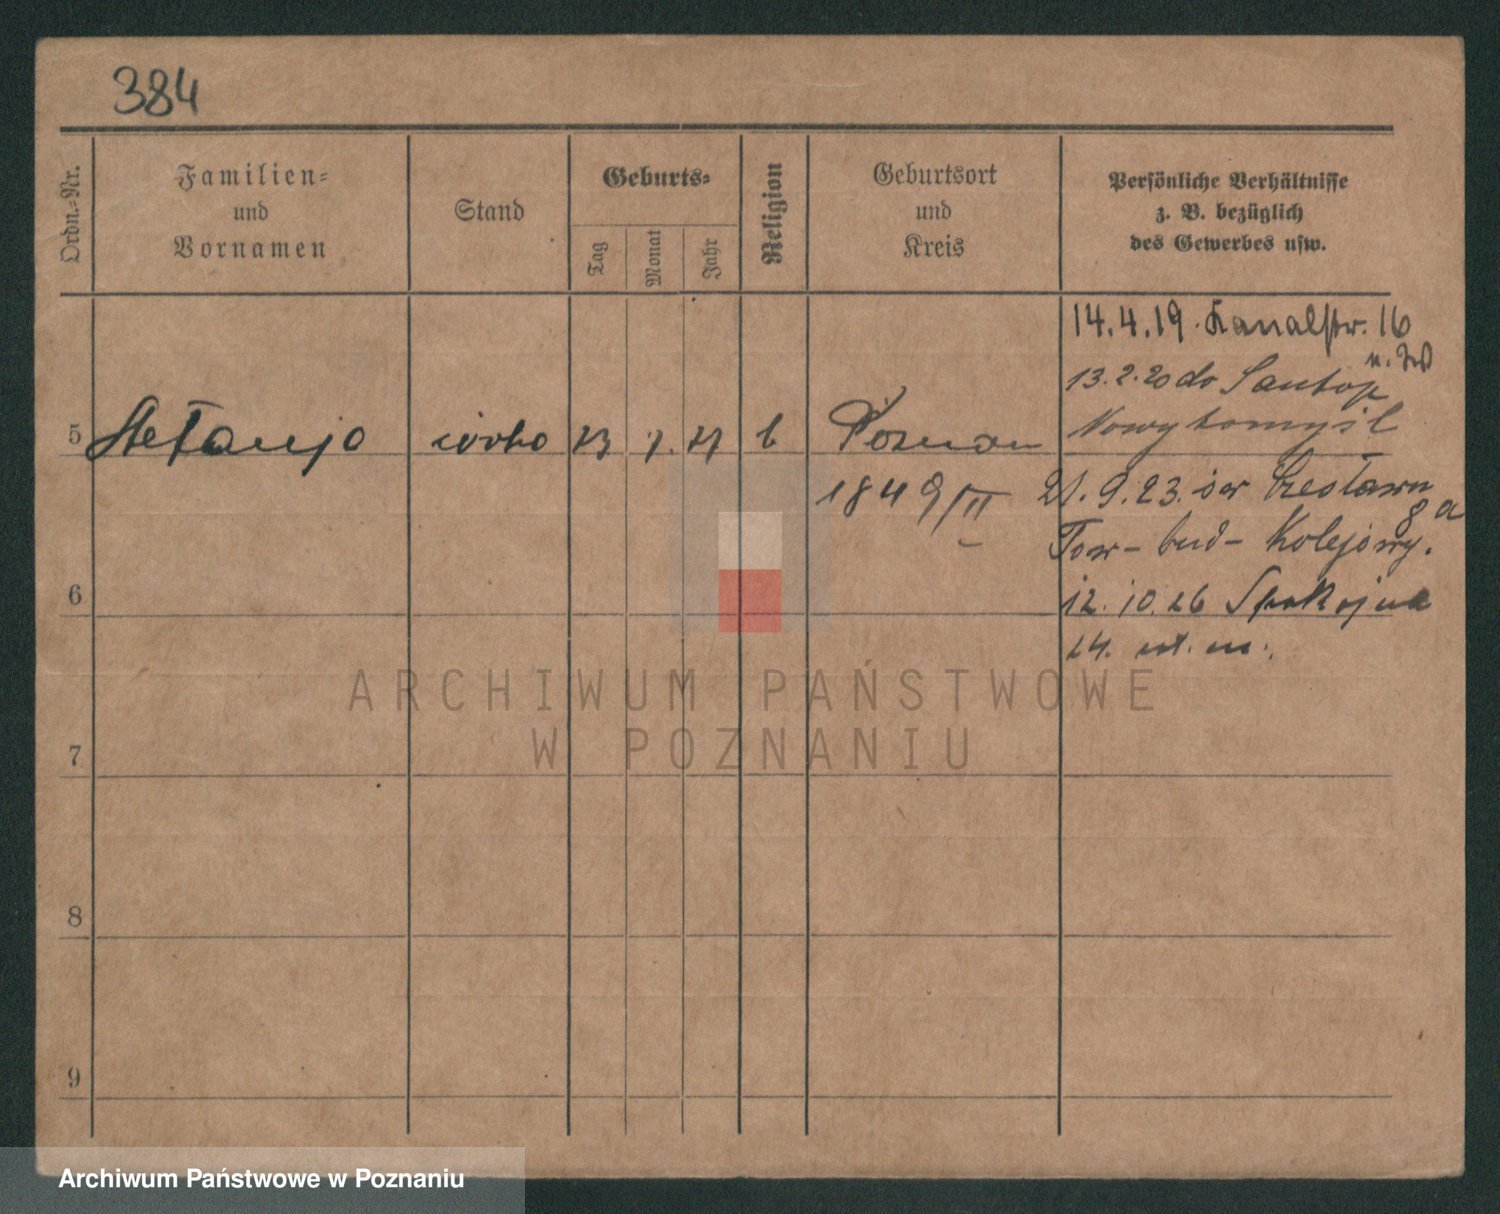 384
Ordn.-Nr.
Familien-
und
Vornamen
Stand
Geburts-
Tag
Monat
Jahr
Religion
Geburtsort
und
Kreis
Persönliche Verhältnisse
z. B. bezüglich
des Gewerbes usw.
14.4.19. Kanalstr. 16
13.2.20 do Santop
Nowytomyśl
5 Stefanja córka 23 7. 27 k Poznań
1849/II
21. 9. 23. Czesława
8 a
Tow- bud- Kolejowy.
12. 10. 26 Spokojna
24. m.
6
7
8
9
ARCHIWUM PAŃSTWOWE
W POZNANIU
Archiwum Państwowe w Poznaniu